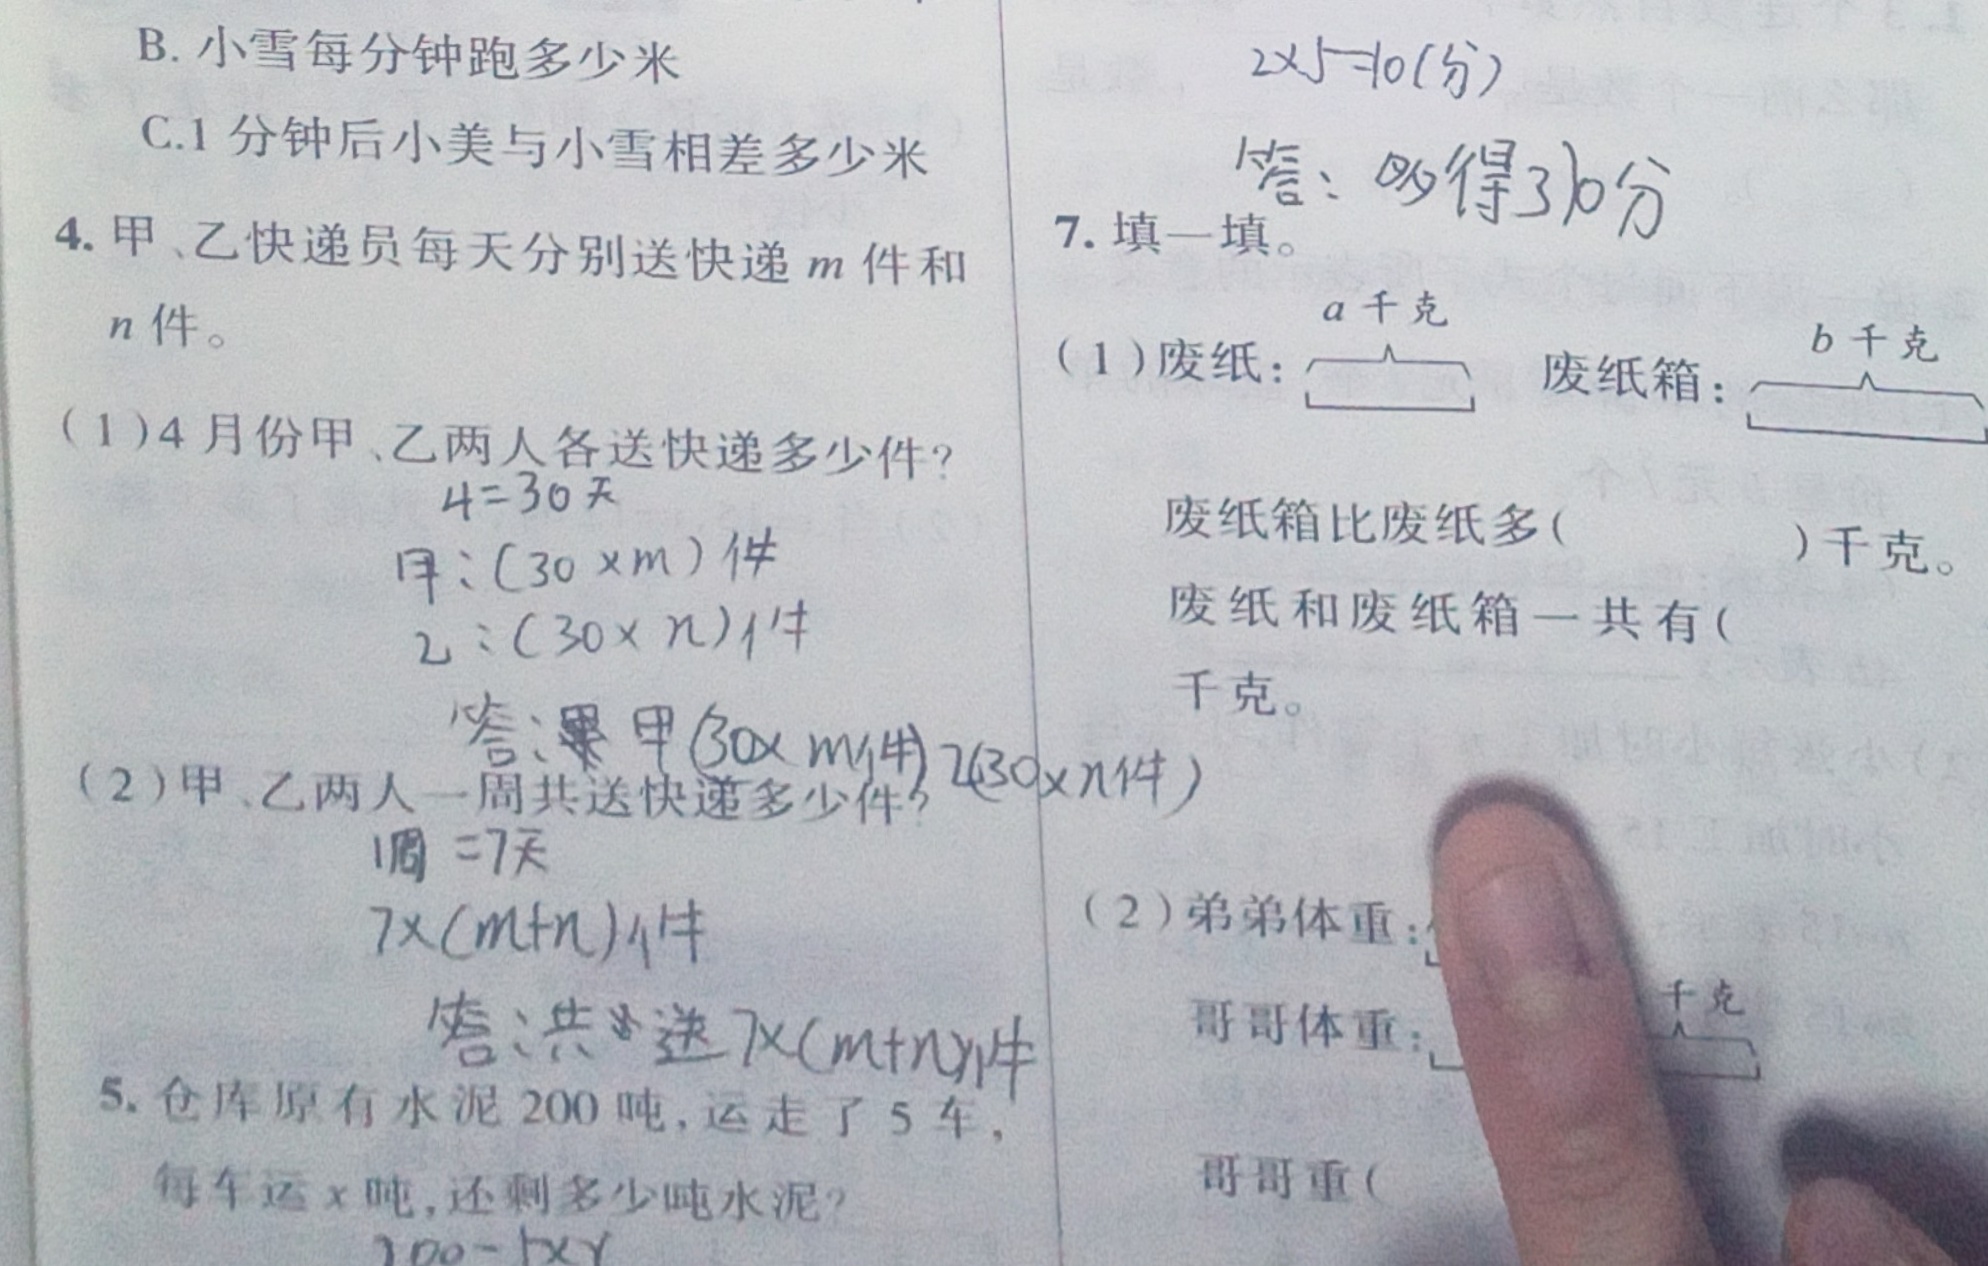 B. 小雪每分钟跑多少米
C.1 分钟后小美与小雪相差多少米
4. 甲、乙快递员每天分别送快递 m 件和
n 件。
(1)4 月份甲、乙两人各送快递多少件?
4=30天
甲:(30×m)件
乙:(30×n)件
答: 甲(30×m件)乙(30×n件)
(2)甲、乙两人一周共送快递多少件?
1周=7天
7×(m+n)件
答:共送7×(m+n)件
5. 仓库原有水泥 200 吨,运走了 5 车,
每车运 x 吨,还剩多少吨水泥?
2×5=10(分)
答: 得 分
7. 填一填。
a 千克
b 千克
(1)废纸: 废纸箱:
废纸箱比废纸多( )千克。
废纸和废纸箱一共有(
千克。
(2)弟弟体重:
千克
哥哥体重:
哥哥重(